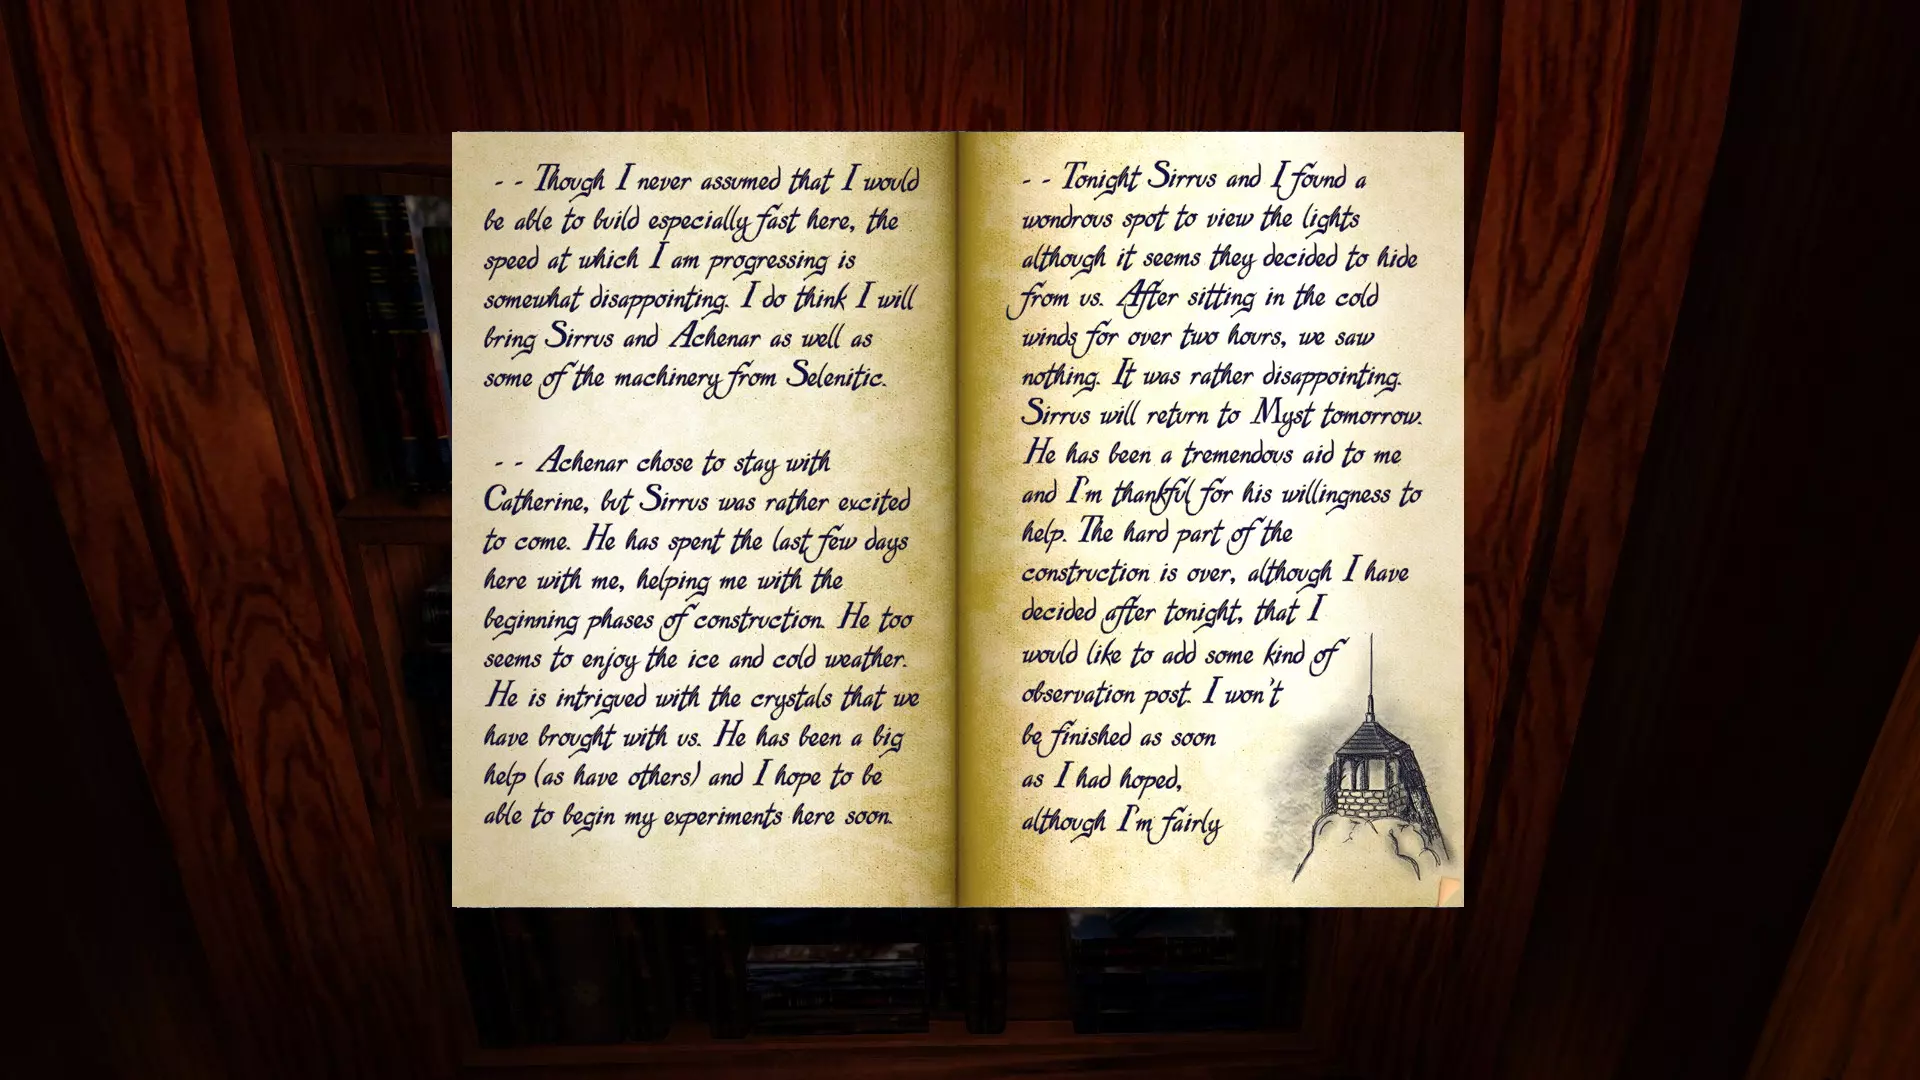 - - Though I never assumed that I would
be able to build especially fast here, the
speed at which I am progressing is
somewhat disappointing. I do think I will
bring Sirrus and Achenar as well as
some of the machinery from Selenitic.
- - Achenar chose to stay with
Catherine, but Sirrus was rather excited
to come. He has spent the last few days
here with me, helping me with the
beginning phases of construction. He too
seems to enjoy the ice and cold weather.
He is intrigued with the crystals that we
have brought with us. He has been a big
help (as have others) and I hope to be
able to begin my experiments here soon.
- - Tonight Sirrus and I found a
wondrous spot to view the lights
although it seems they decided to hide
from us. After sitting in the cold
winds for over two hours, we saw
nothing. It was rather disappointing.
Sirrus will return to Myst tomorrow.
He has been a tremendous aid to me
and I'm thankful for his willingness to
help. The hard part of the
construction is over, although I have
decided after tonight, that I
would like to add some kind of
observation post. I won't
be finished as soon
as I had hoped,
although I'm fairly